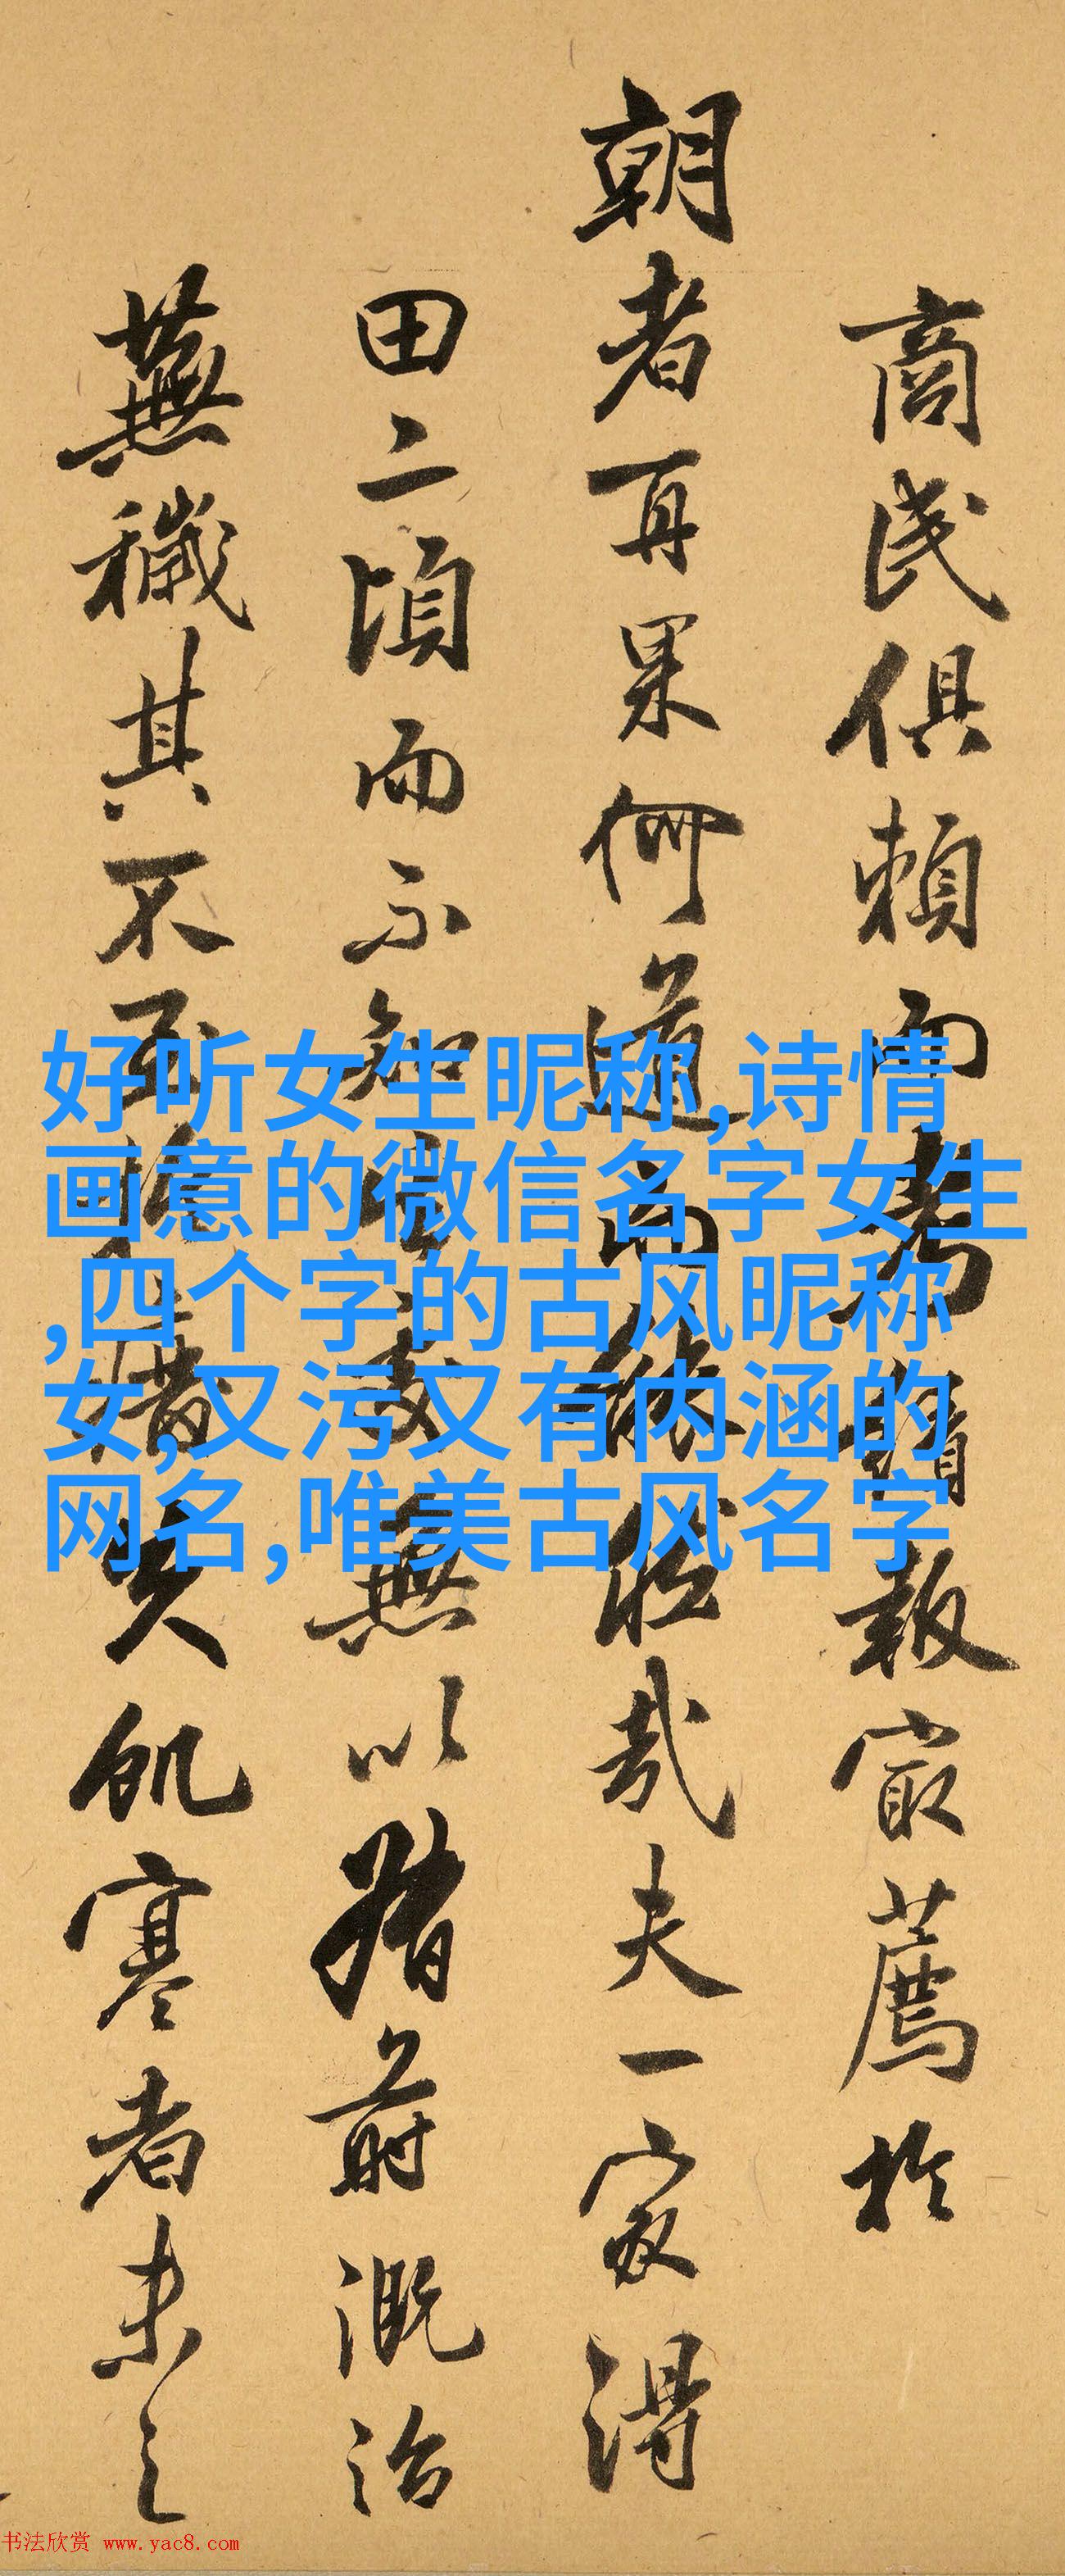 商民俱賴而考績報最薦於
朝者再果何道而能哉夫一家得
田二頃而不知無以前溉治
蕪穢其不至飢寒者未之
好听女生昵称,诗情
画意的微信名字女生
,四个字的古风昵称
女,又污又有内涵的
网名,唯美古风名字
书法欣赏 www.yac8.com